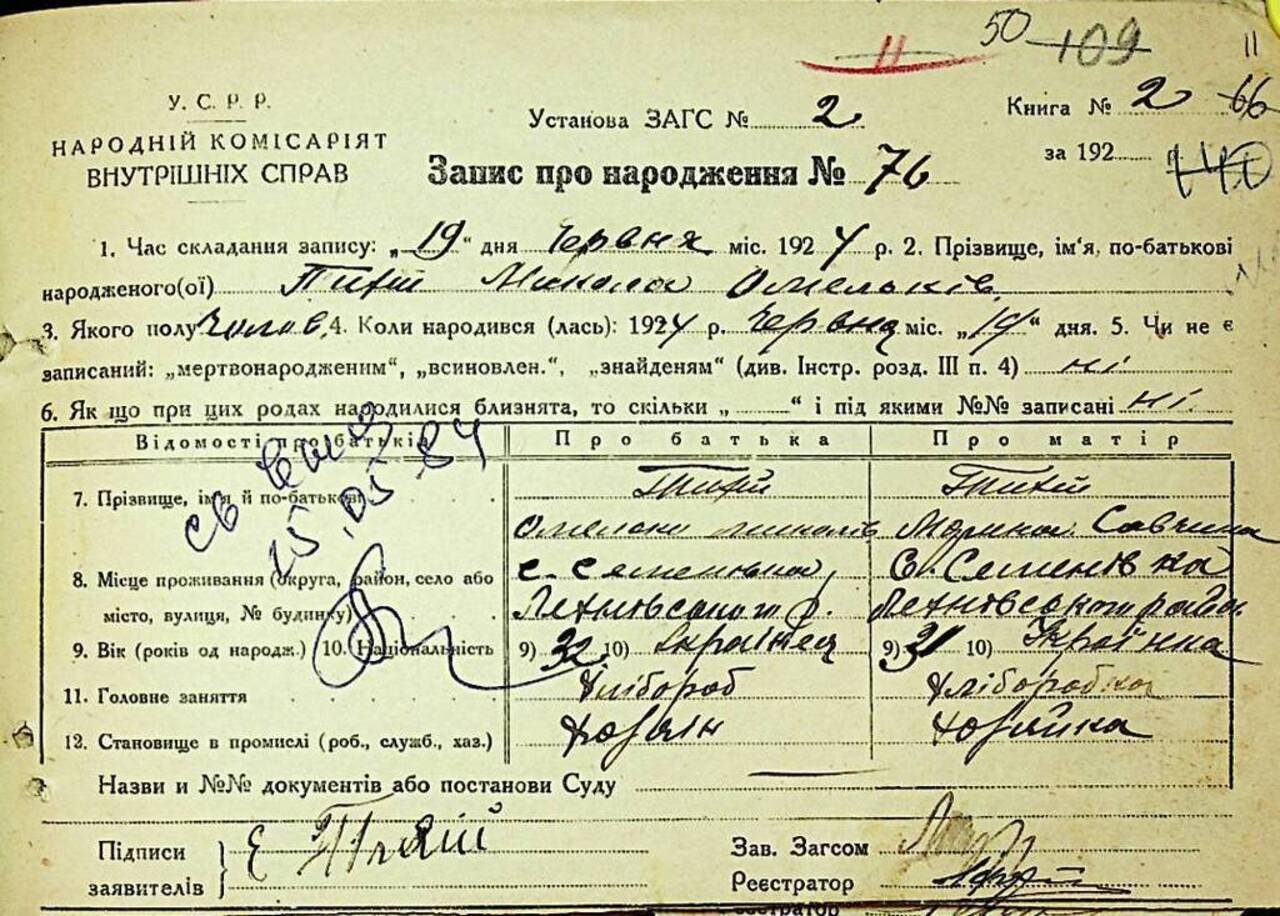 11 50 109 11
У. С. Р. Р.
НАРОДНІЙ КОМІСАРІЯТ
ВНУТРІШНІХ СПРАВ
Установа ЗАГС № 2
Книга № 2 66
за 192 140
Запис про народження № 76
1. Час складання запису: „ 19 “ дня Червня міс. 1924 р. 2. Прізвище, ім'я, по-батькові
народженого(ої) Микола Омельків
3. Якого полу Чолов. 4. Коли народився (лась): 1924 р. Червня міс. „ 19 “ дня. 5. Чи не є
записаний: „мертвонародженим“, „всиновлен.“, „знайденям“ (див. Інстр. розд. III п. 4) ні
6. Як що при цих родах народилися близнята, то скільки „ “ і під якими №№ записані ні.
Відомості про батьків Про батька Про матір
7. Прізвище, ім'я й по-батькові
Марина Савчина
8. Місце проживання (округа, район, село або с. Семенівка, с. Семенівка
місто, вулиця, № будинку)
9. Вік (років од народж.) 10. Національність 9) 32 10) Українец 9) 31 10) Українка
11. Головне заняття Хлібороб Хліборобка
12. Становище в промислі (роб., служб., хаз.) Хозяїн Хозяйка
св
15.05.84
Назви и №№ документів або постанови Суду
Підписи
заявителів
Зав. Загсом
Реєстратор